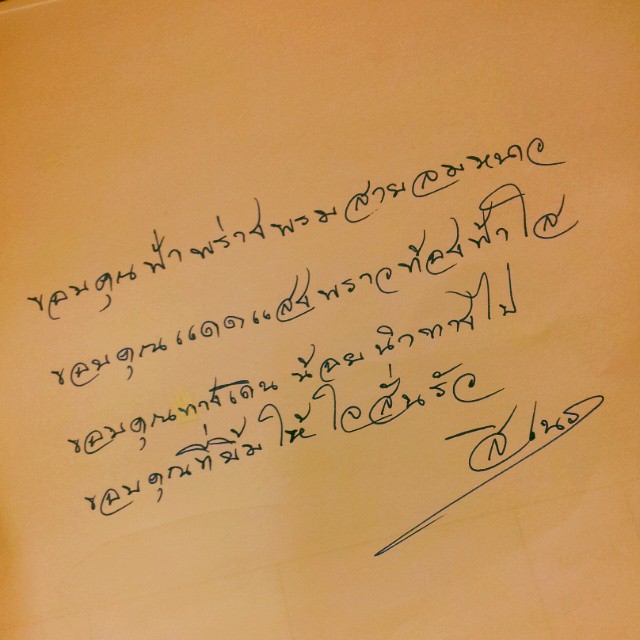 ขอบคุณฟ้าพร่างพรมสายลมหนาว
ขอบคุณแดดแสงพราวท้องฟ้าใส
ขอบคุณทางเดินน้อยนำทางไป
ขอบคุณที่ยิ้มให้ใจสั่นรัว